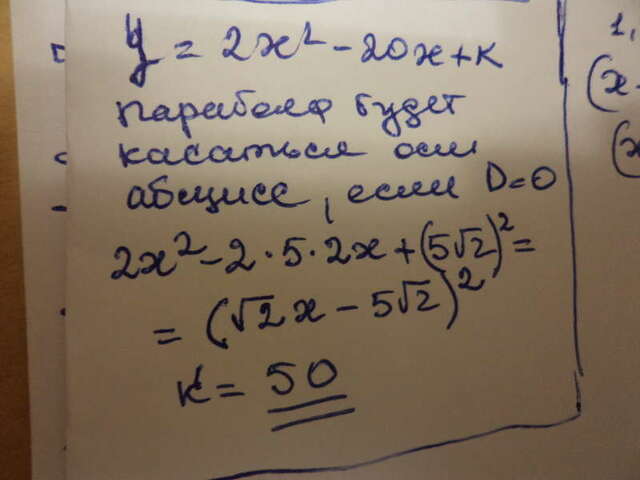 y = 2x² - 20x + к
парабола будет
касаться оси
абцисс, если D=0
2x² - 2·5·2x + (5√2)² =
= (√2x - 5√2)²
к = 50
1,
(x-
(x